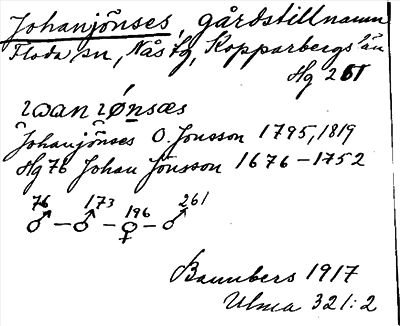 Johanjönses, gårdstillnamn
Floda sn, Nås tg, Kopparbergs län
Hg 261
Johanjönses O. Jonsson 1795, 1819
Hg 76 Johan Jönsson 1676-1752
76 173 196 261
♂ - ♂ - ♀ - ♂
1917
Ulma 321:2